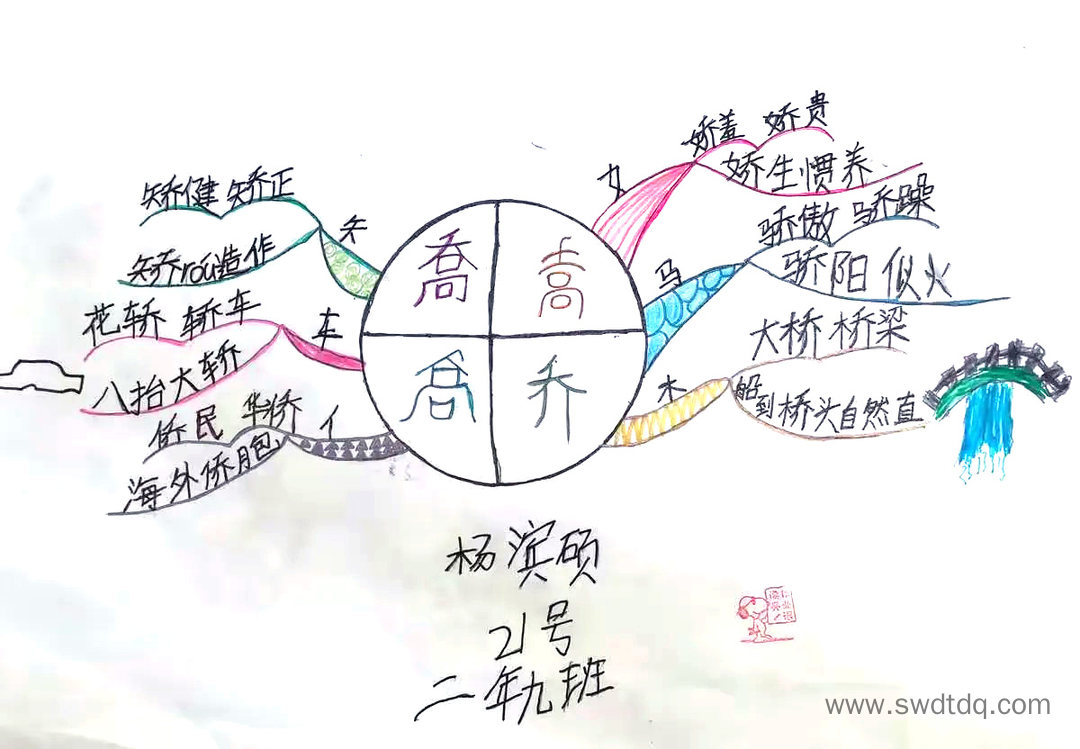 娇羞 娇贵
女
娇生惯养
骄傲 骄躁
马
骄阳似火
大桥 桥梁
木
船到桥头自然直
矫健 矫正
矢
矫rou造作
花轿 轿车
车
八抬大轿
侨民 华侨
亻
海外侨胞
喬
喬
乔
杨滨硕
21号
二年九班
www.swdtdq.com